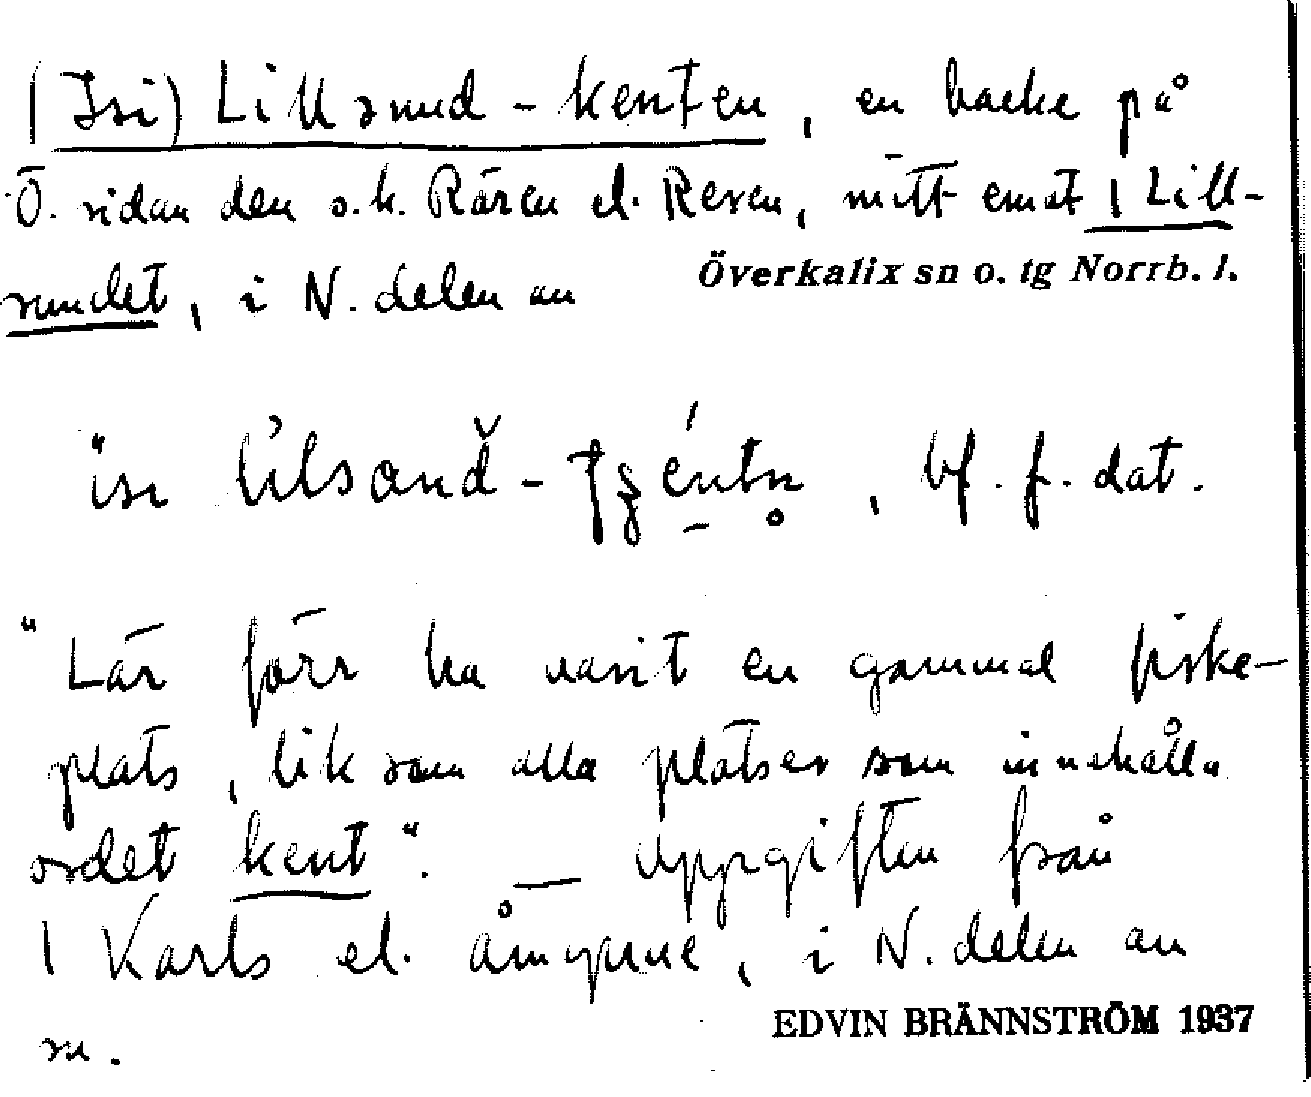 (Isi) Lillsund-kenten, en backe på
Ö. sidan den s.k. Rären el. Reven, mitt emot | Lill-
sundet, i N. delen av
Överkalix sn o. tg Norrb. l.
isi , bf. f. dat.
"Lär förr ha varit en gammal fiske-
plats, lik som alla platser som innehålla
ordet kent". — Uppgiften från
| Karls el. , i N. delen av
sn.
EDVIN BRÄNNSTRÖM 1937